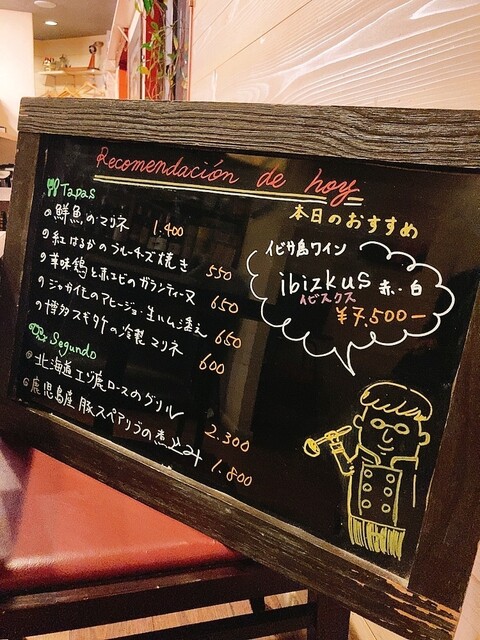 Recomendación de hoy
本日のおすすめ
Tapas
鮮魚のマリネ 1.400
紅はるかのブルーチーズ焼き 550
華味鶏と赤エビのガランティーヌ 650
ジャガイモのアヒージョ 生ハム添え 650
博多スギタケの冷製マリネ 600
Segundo
北海道エゾ鹿ロースのグリル 2.300
鹿児島産豚スペアリブの煮込み 1.800
イビサ島ワイン
ibizkus 赤・白
イビスクス
¥7,500-